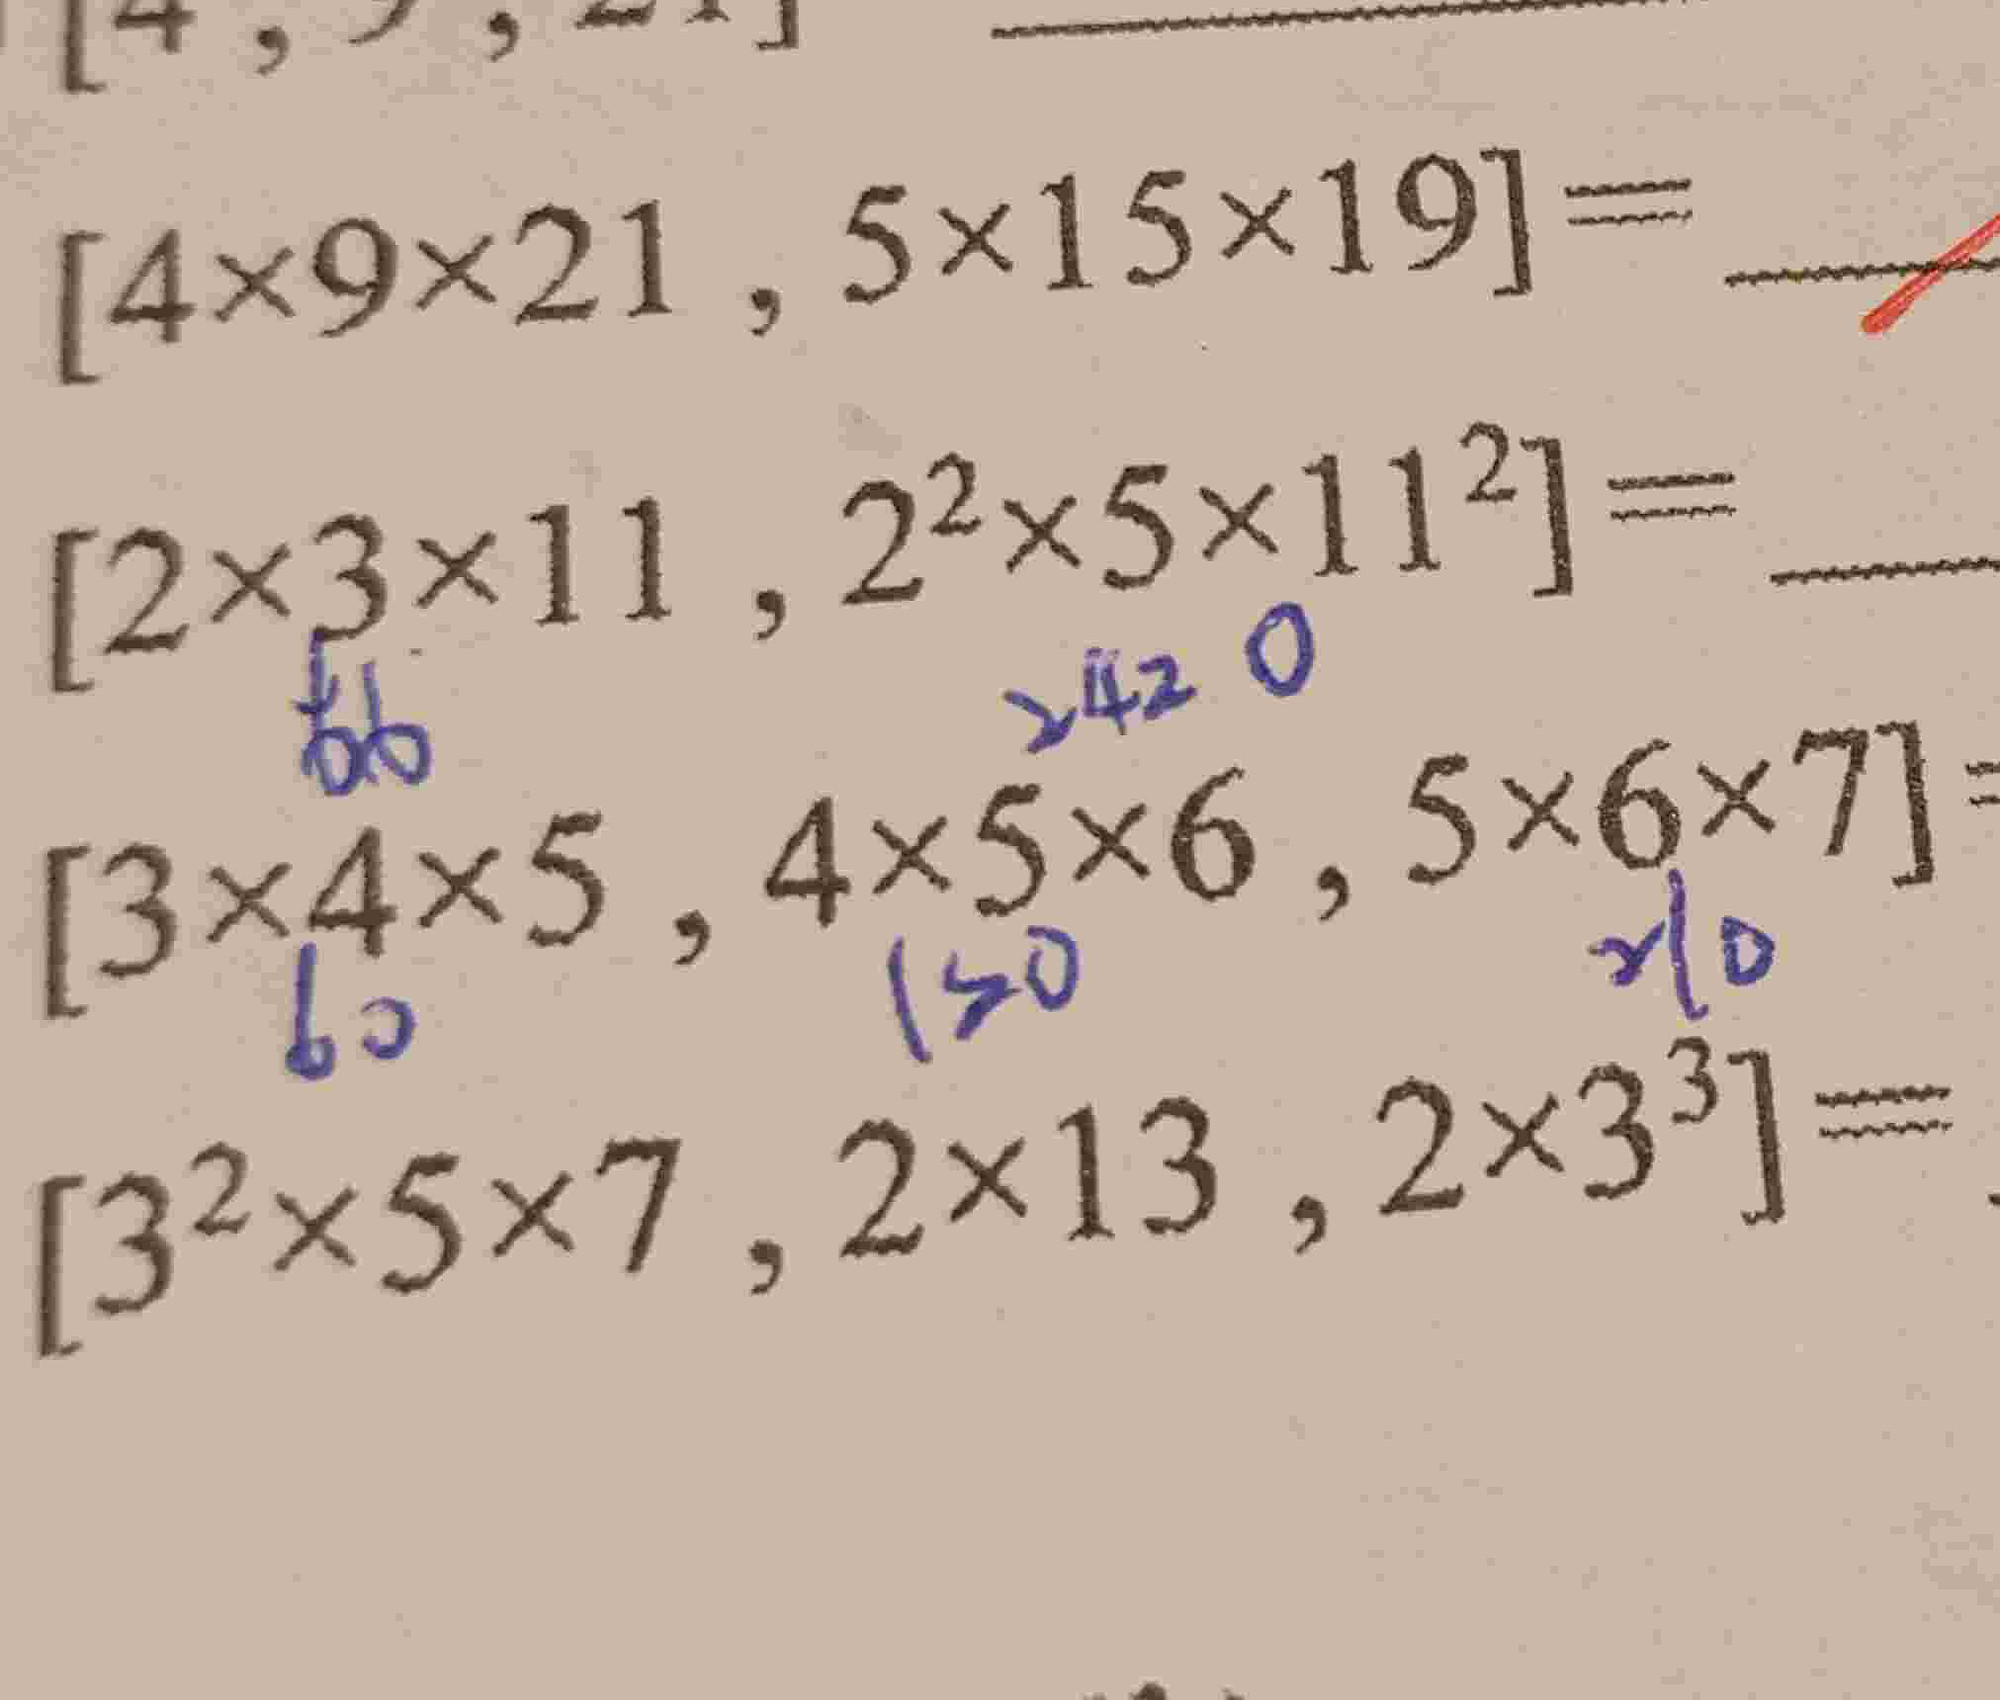 [4×9×21 , 5×15×19]=
[2×3×11 , 2²×5×11²]=
66 2420
[3×4×5 , 4×5×6 , 5×6×7]=
60 120 210
[3²×5×7 , 2×13 , 2×3³]=